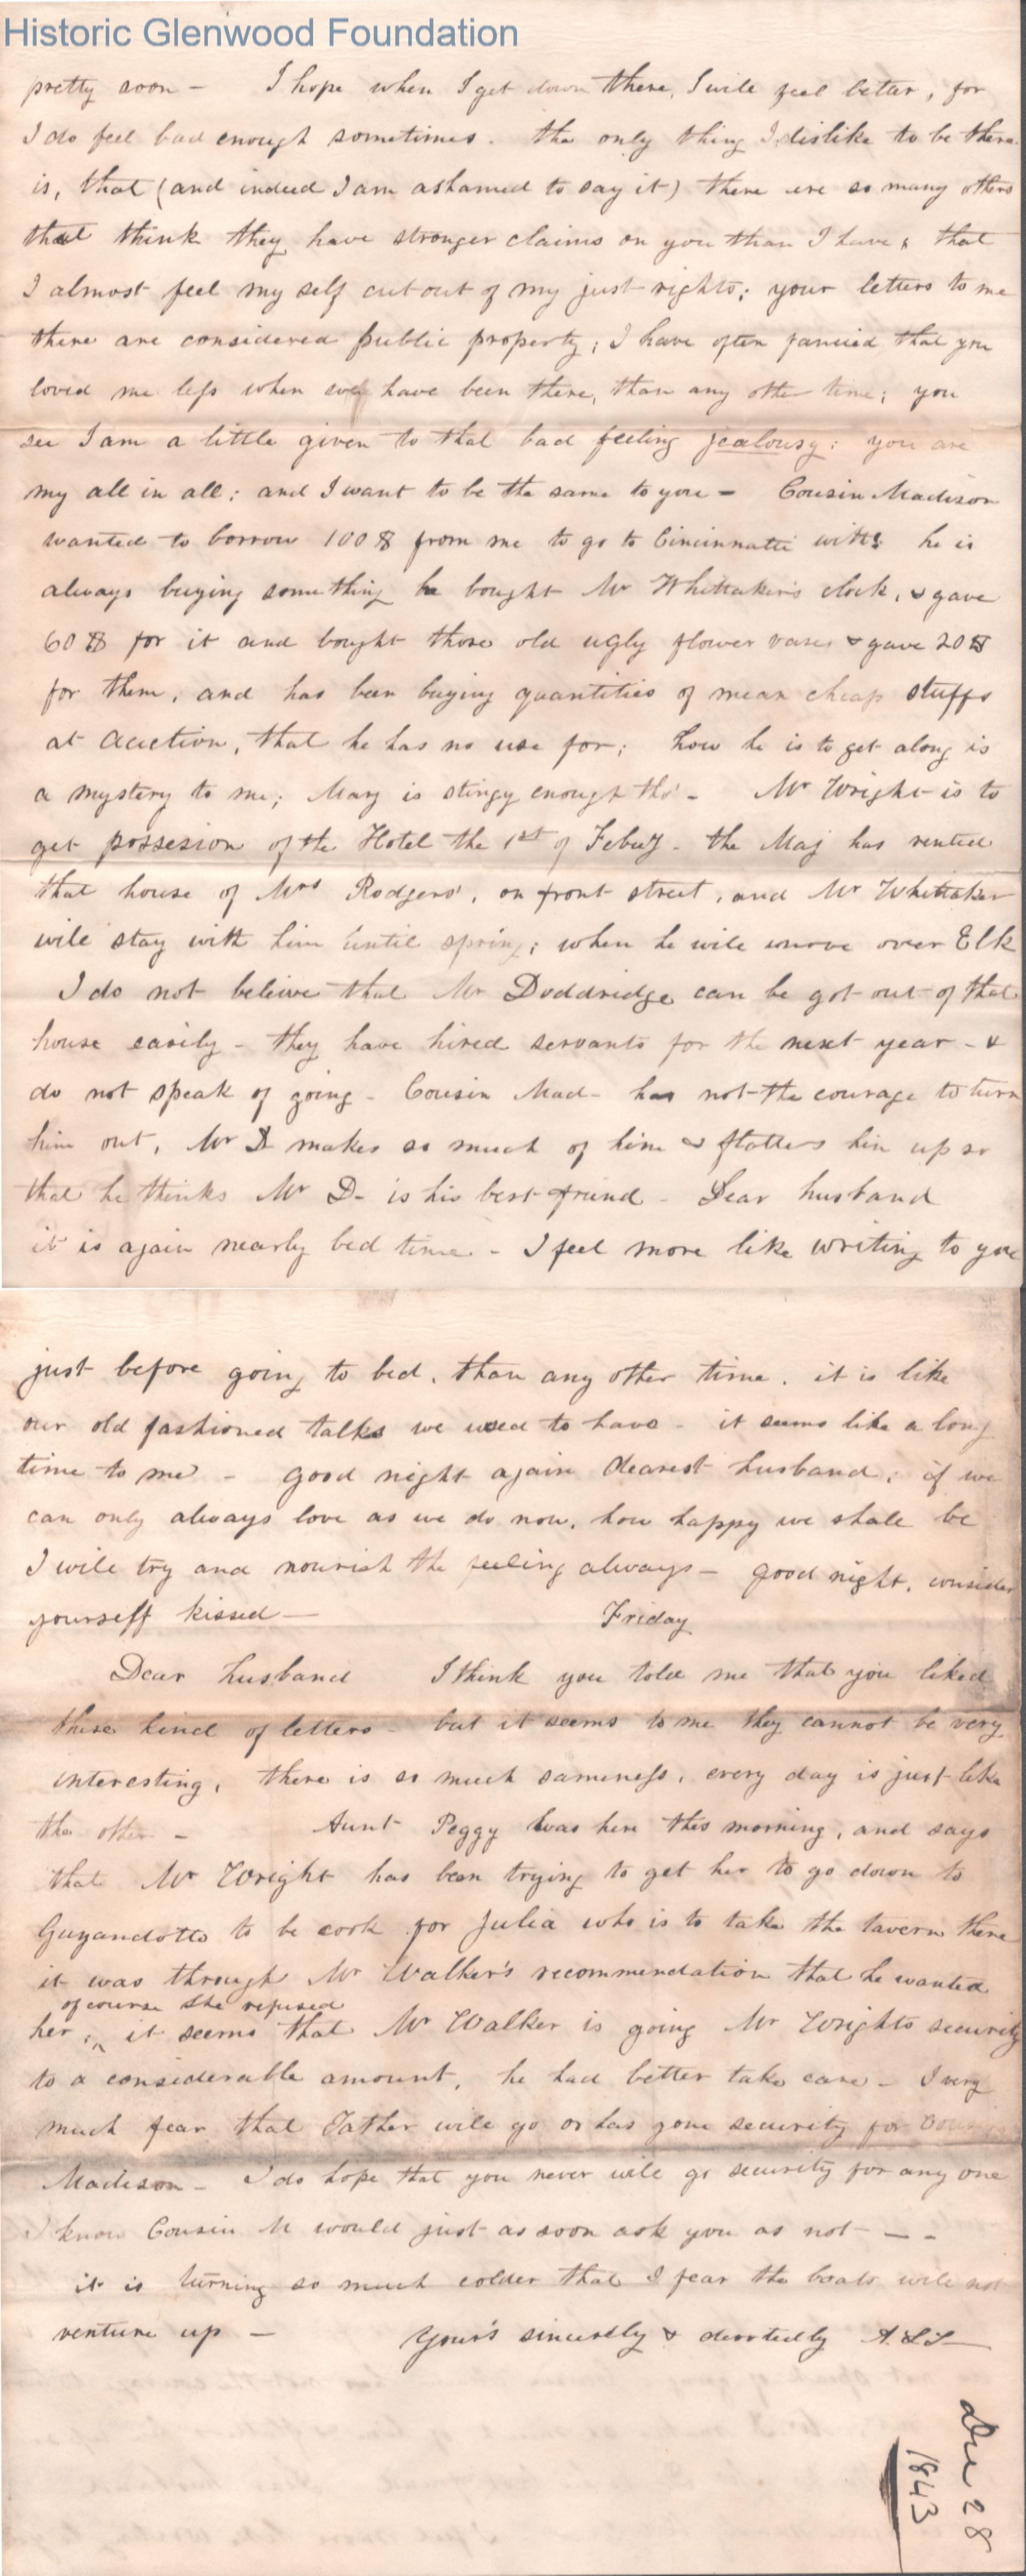 Historic Glenwood Foundation
pretty soon - I hope when I get down there, I will feel better, for
I do feel bad enough sometimes. the only thing I dislike to be there
is, that (and indeed I am ashamed to say it) there are so many others
that think they have stronger claims on you than I have, that
I almost feel my self cut out of my just rights; your letters to me
there are considered public property; I have often fancied that you
loved me less when we have been there, than any other time; you
see I am a little given to that bad feeling jealousy: you are
my all in all; and I want to be the same to you - Cousin Madison
wanted to borrow 100$ from me to go to Cincinnatti with; he is
always buying something he bought Mr Whittaker's clock, & gave
60$ for it and bought those old ugly flower vases & gave 20$
for them, and has been buying quantities of mean cheap stuffs
at auction, that he has no use for; how he is to get along is
a mystery to me; Mary is stingy enough tho' - Mr Wright is to
get possesion of the Hotel the 1st of Feb'y - the Maj has rented
that house of Mrs Rodgers', on front street, and Mr Whittaker
will stay with him until spring; when he will move over Elk
I do not beleive that Mr Doddridge can be got out of that
house easily - they have hired servants for the next year - &
do not speak of going - Cousin Mad- has not the courage to turn
him out, Mr D makes so much of him & flatters him up so
that he thinks Mr D- is his best friend - Dear husband
it is again nearly bed time - I feel more like writing to you
just before going to bed, than any other time. it is like
our old fashioned talks we used to have - it seems like a long
time to me - good night again dearest husband, if we
can only always love as we do now, how happy we shall be
I will try and nourish the feeling always - good night, consider
yourself kissed -
Friday
Dear husband I think you told me that you liked
these kind of letters - but it seems to me they cannot be very
interesting, there is so much sameness, every day is just like
the other - Aunt Peggy was here this morning, and says
that Mr Wright has been trying to get her to go down to
Guyandotte to be cook for Julia who is to take the tavern there
it was through Mr Walker's recommendation that he wanted
of course she refused
her, ^ it seems that Mr Walker is going Mr Wrights security
to a considerable amount, he had better take care - I very
much fear that Father will go or has gone security for Cousin
Madison - I do hope that you never will go security for any one
I know Cousin M would just as soon ask you as not - - -
it is turning so much colder that I fear the boats will not
venture up - Your's sincerely & devotedly A.L.S
Dec 28
1843